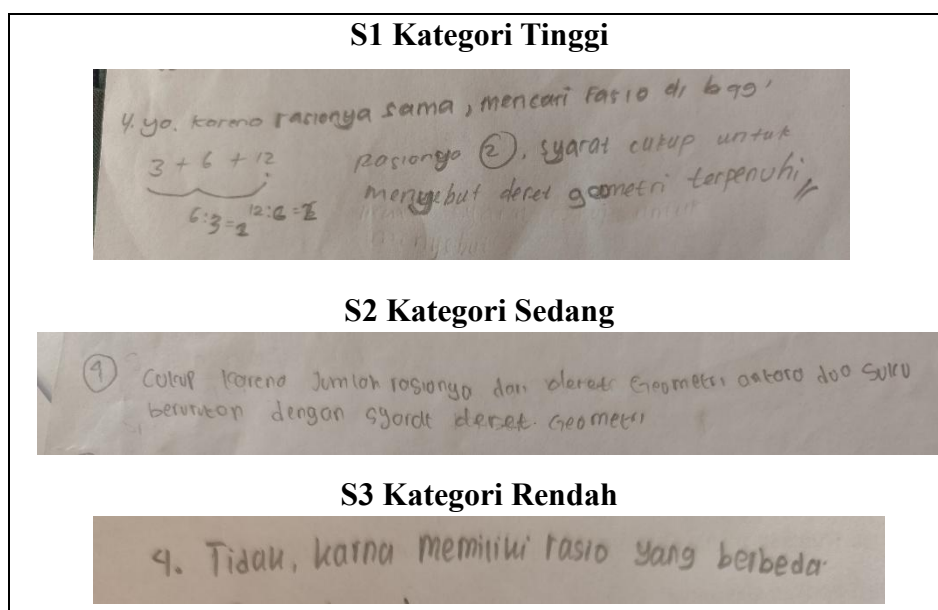 S1 Kategori Tinggi
4. yo. karena rasionya sama, mencari rasio di bagi
3 + 6 + 12
rasionya 2, syarat cukup untuk
menyebut deret geometri terpenuhi
6:3=2 12:6=2
S2 Kategori Sedang
Cukup karena Jumlah rasionya dari deret Geometri antara dua suku
berurutan dengan syarat deret Geometri
S3 Kategori Rendah
4. Tidak, karna memiliki rasio yang berbeda